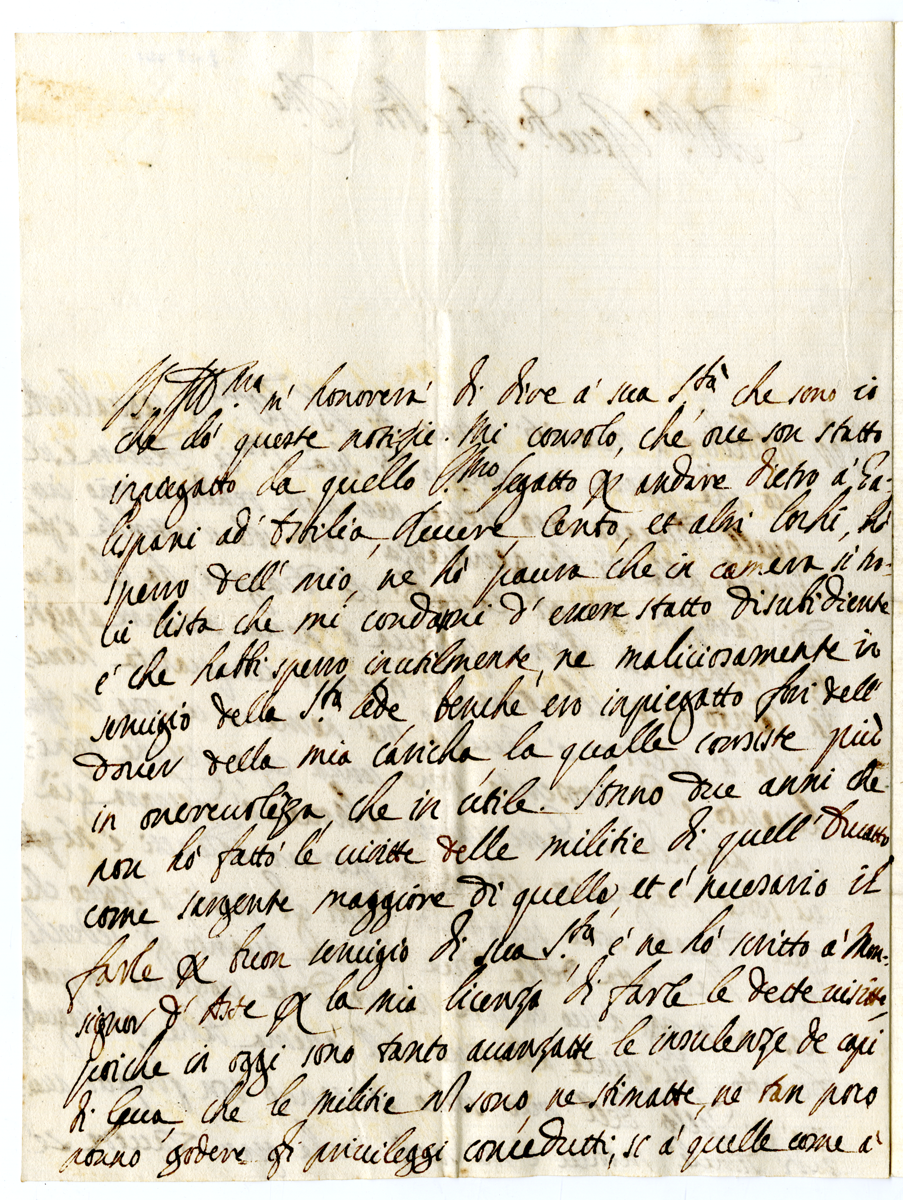 V. Ill.ma m' honorerà di dire à sua S.tà che sono io
che dò queste notizie. Mi consolo, che ove son statto
inpiegatto da quello Em.mo Legatto per andare dietro à Ca-
lispani ad' Ostilia, Revere, Cento, et altri lochi, hò
speso dell' mio, ne hò paura che in camera si tro-
vi lista che mi condanni d' essere statto disubidiente
é che habbi speso inutilmente, ne maliciosamente in
servigio della S.ta Cede, benche ero inpiegatto fori dell'
dover della mia caricha la qualle consiste più
in onorevolezza, che in utile. Sonno due anni che
non hò fatto le visitte delle militie di quell' Ducatto
come sargente maggiore di quello, et é necesario il
farle per buon servigio di sua S.tà é ne hò scritto à Mon-
signor d' Aste per la mia licenza di farle le dette visitte,
poiche in oggi sono tanto avanzatte le insulenze de capi
di , che le militie non sono ne stimatte, ne tan poco
ponno godere gi privileggi concedutti, si à quelle come à